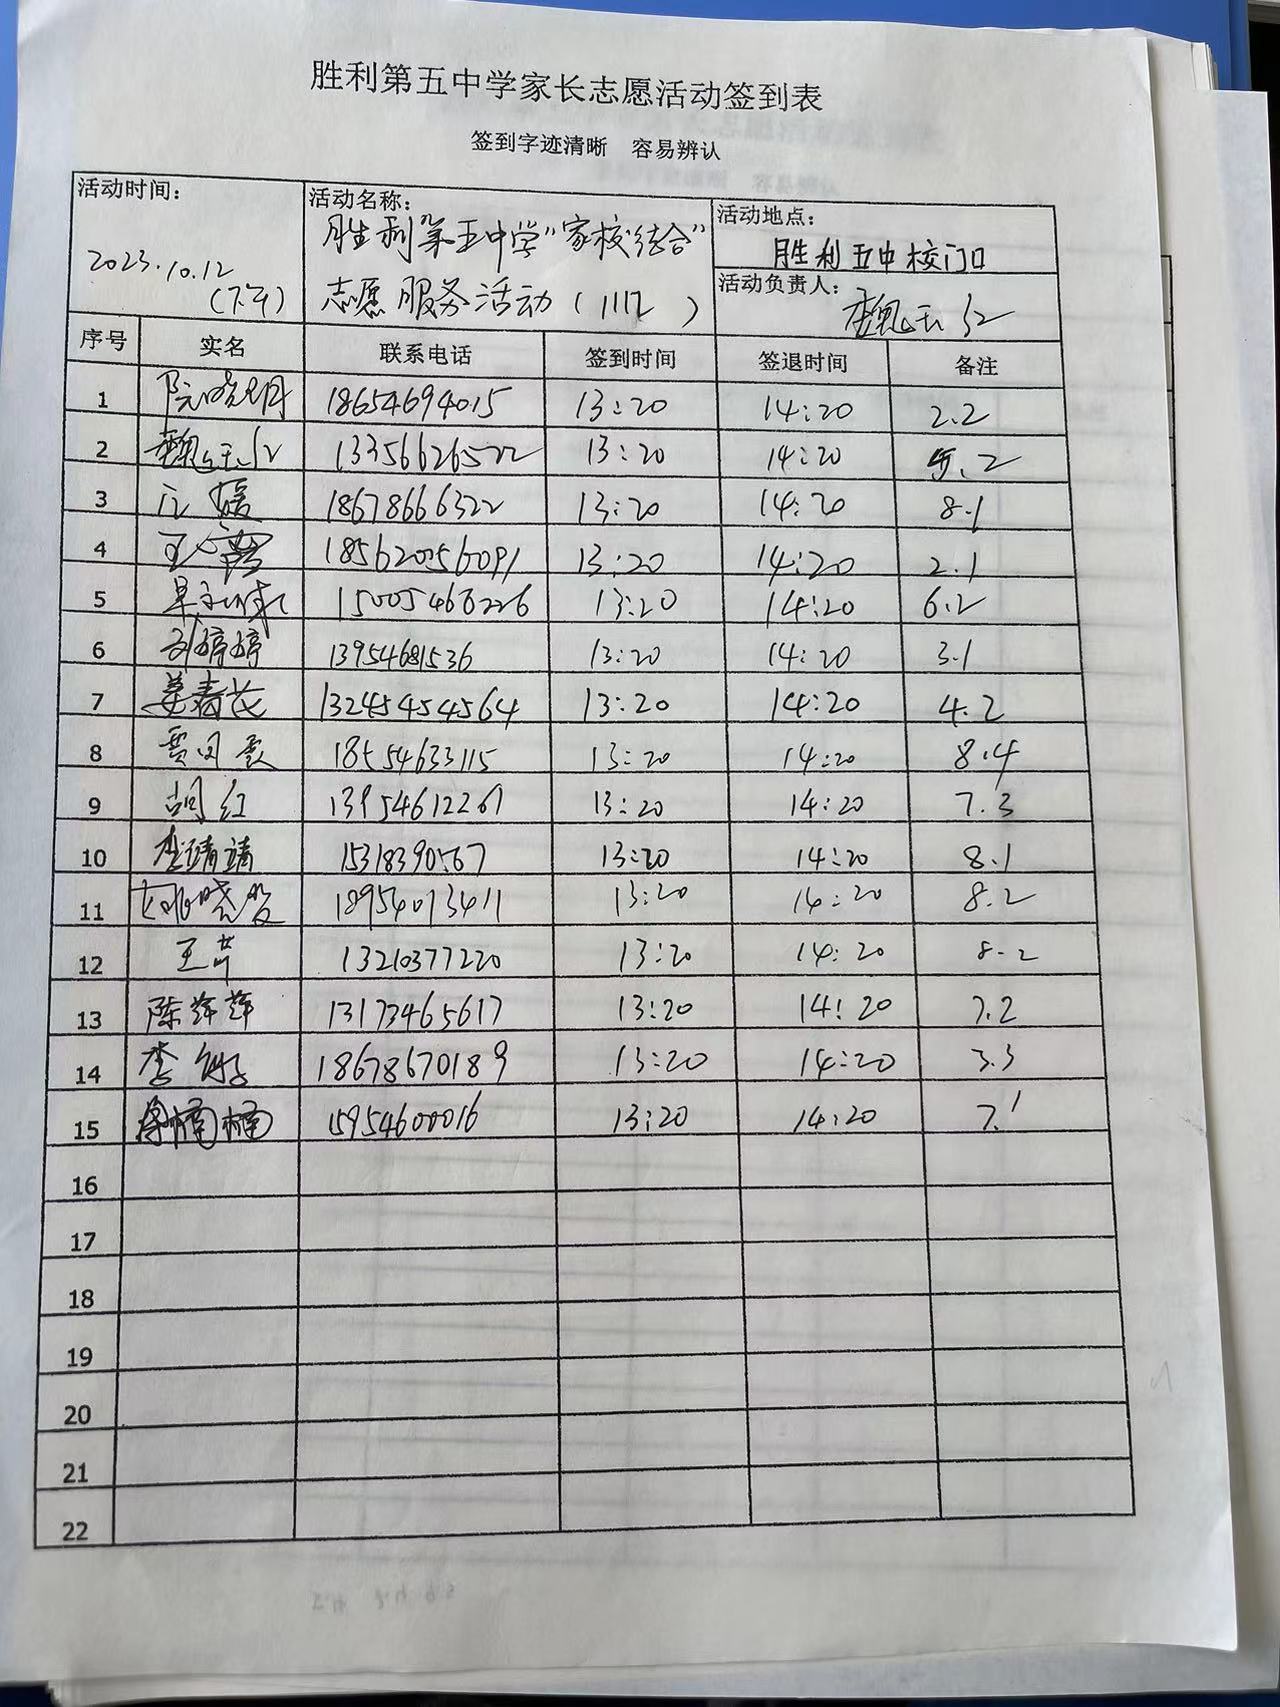 胜利第五中学家长志愿活动签到表
签到字迹清晰 容易辨认
活动时间: 2023.10.12 (下午)
活动名称: 胜利第五中学"家校结合"
志愿服务活动(1112)
活动地点: 胜利五中校门口
活动负责人: 魏玉红
序号 实名 联系电话 签到时间 签退时间 备注
1 阮晓丹 18654694015 13:20 14:20 2.2
2 魏玉红 13356626522 13:20 14:20 5.2
3 媛 18678666322 13:20 14:20 8.1
4 王 18562056091 13:20 14:20 2.1
5 15005466226 13:20 14:20 6.2
6 刘婷婷 13954681536 13:20 14:20 3.1
7 姜春花 13245454564 13:20 14:20 4.2
8 贾 18554633115 13:20 14:20 8.4
9 胡红 13954612261 13:20 14:20 7.3
10 李靖靖 15318390567 13:20 14:20 8.1
11 姚晓 18954013411 13:20 14:20 8.2
12 王芹 13210377220 13:20 14:20 8.2
13 陈萍萍 13173465617 13:20 14:20 7.2
14 李 18678670189 13:20 14:20 3.3
15 楠楠 15954600016 13:20 14:20 7.1
16
17
18
19
20
21
22